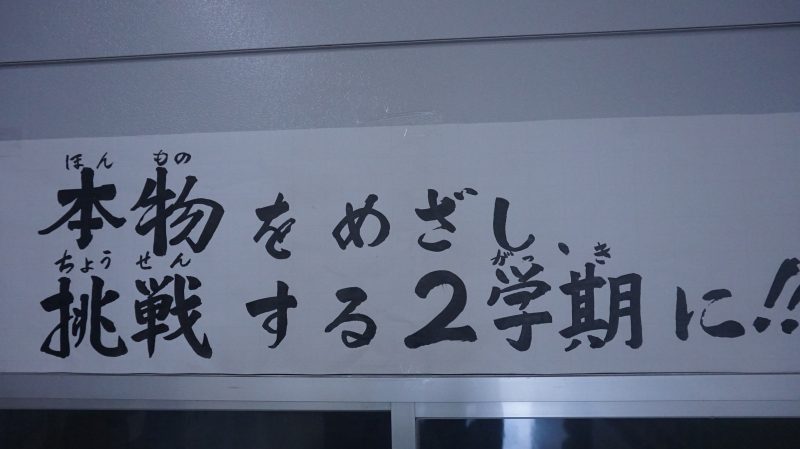 ほん もの
本物をめざし、
ちょう せん がっ き
挑戦する2学期に!!